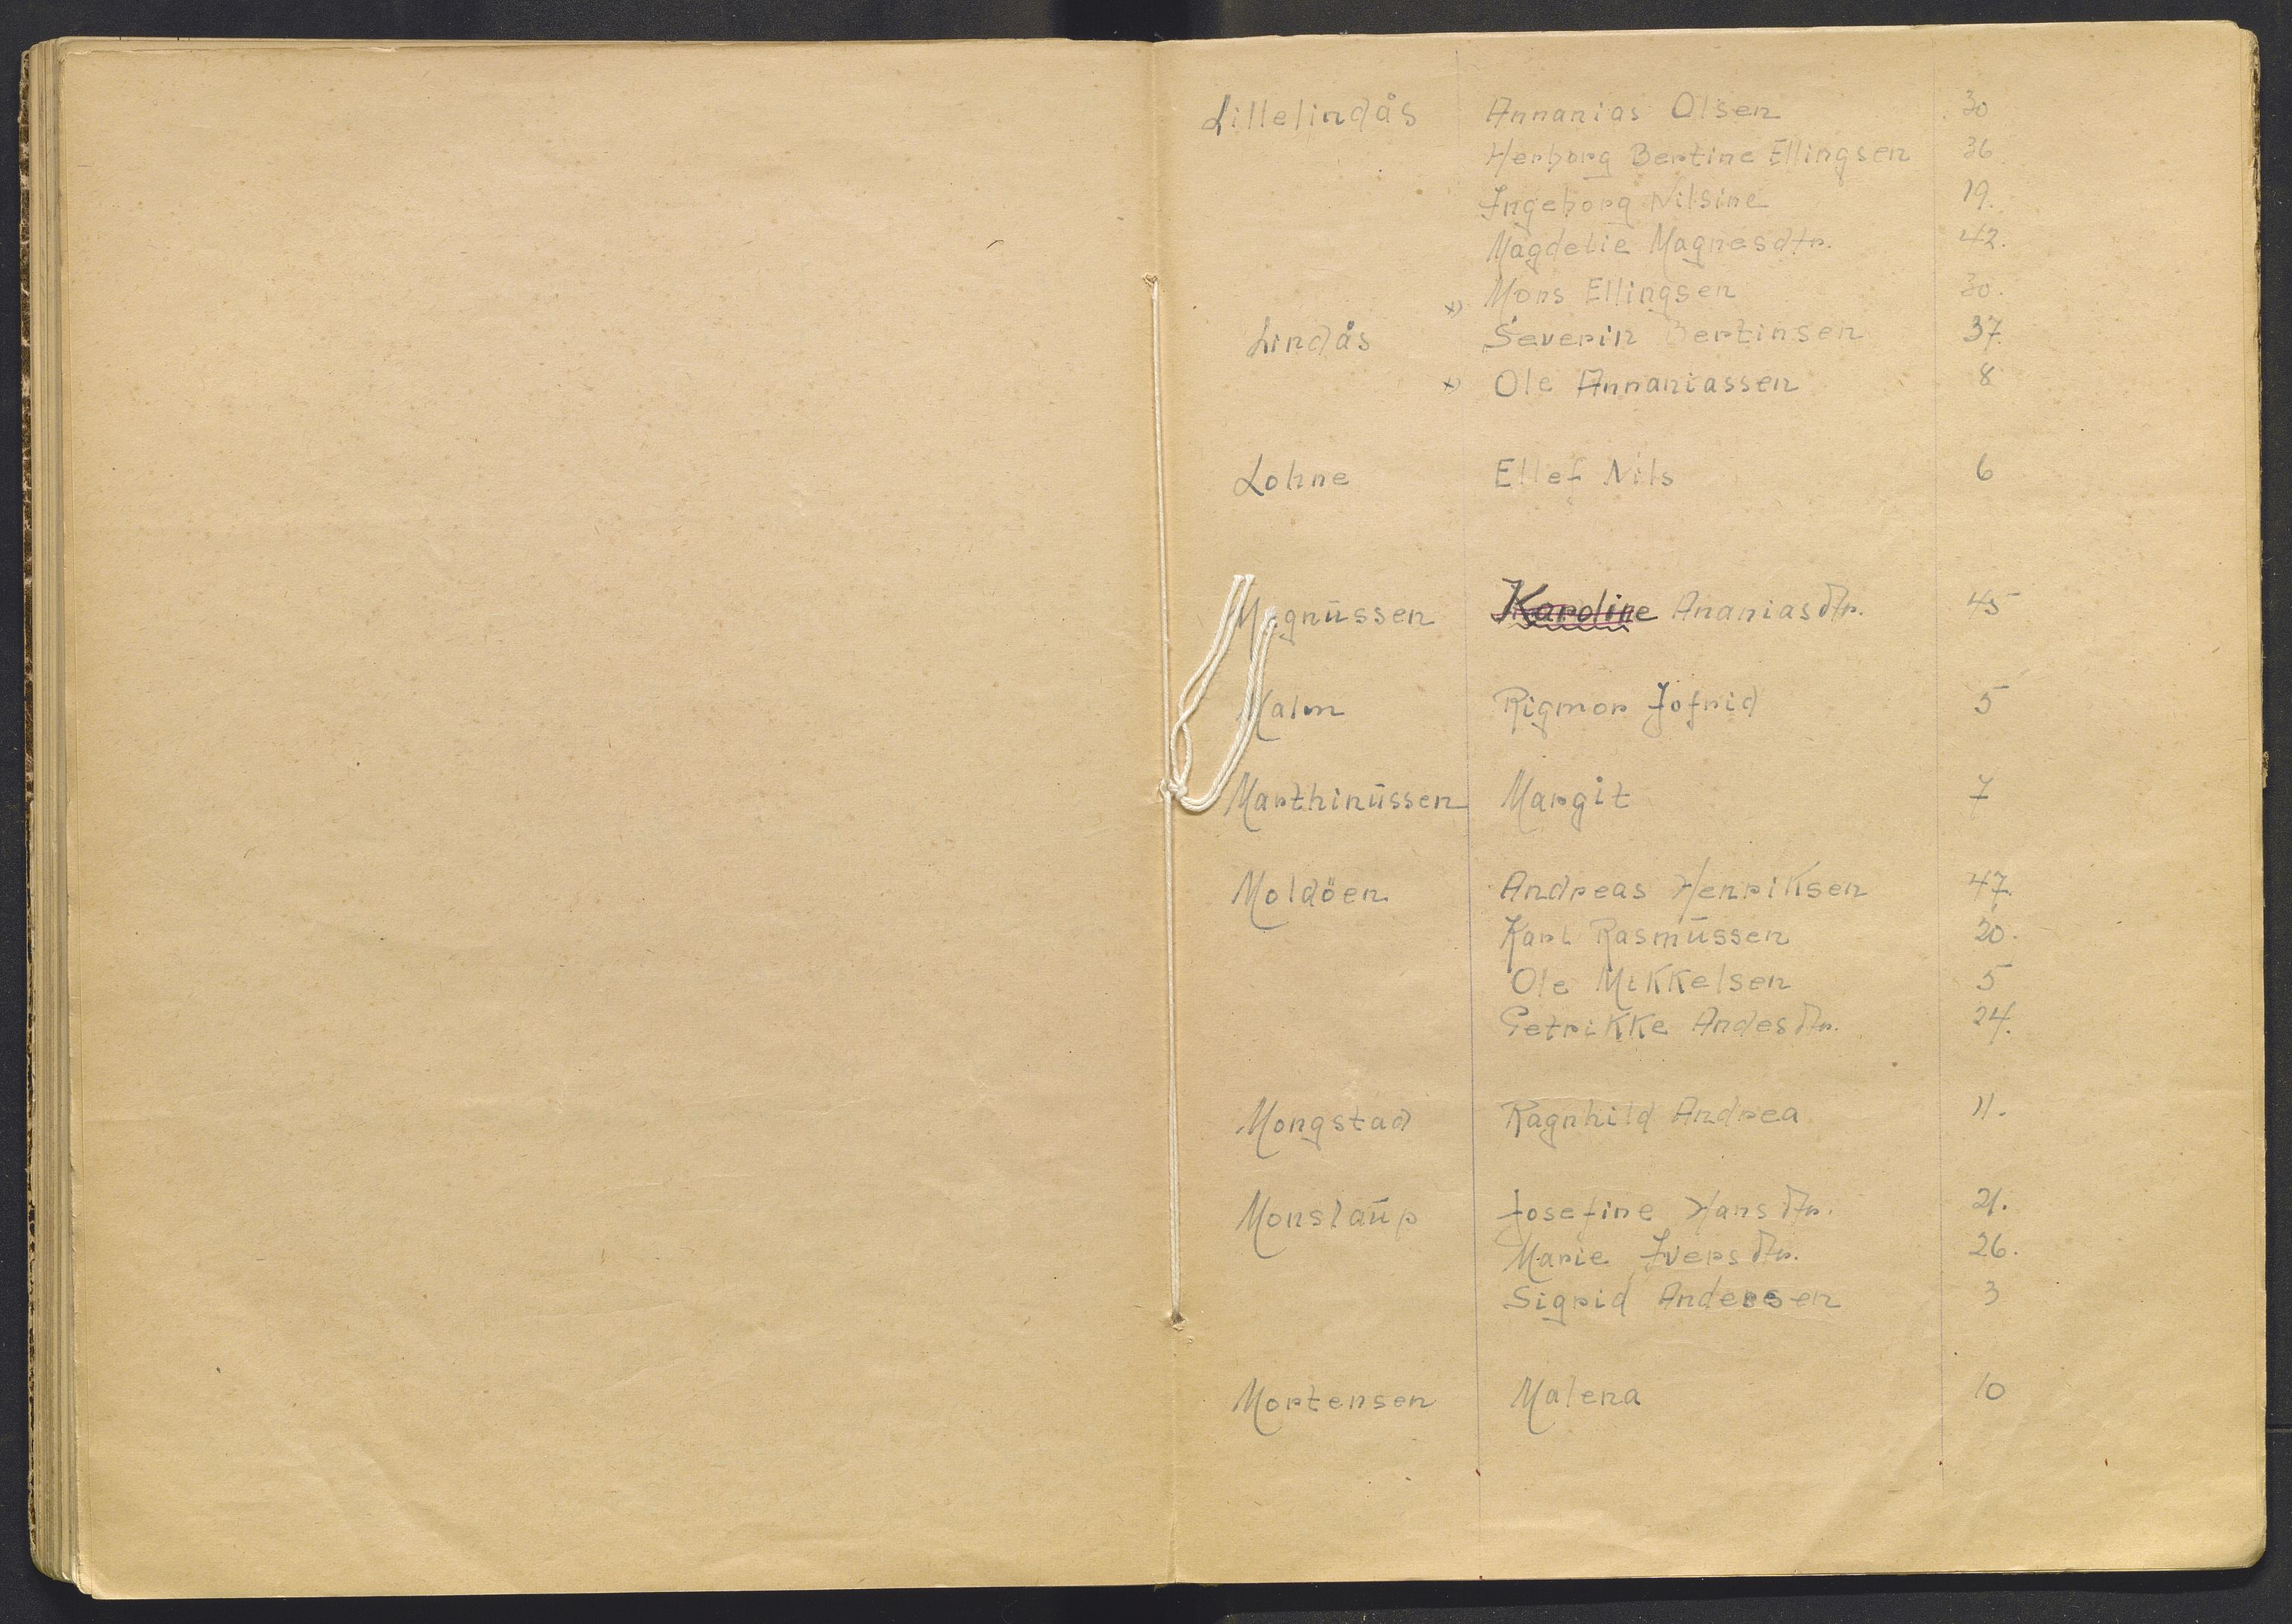 Lillelindås Annanias Olsen 30
Herborg Bertine Ellingsen 36
Ingeborg Nilsine 19.
Magdelie Magnesdtr. 42.
Mons Ellingsen 30.
Lindås x) Severin Bertinsen 37.
x) Ole Annaniassen 8
Lohne Ellef Nils 6
Magnüssen Karoline Ananiasdtr. 45
Malm Rigmor Jofrid 5
Marthinüssen Margit 7
Moldöen Andreas Henriksen 47.
Karl Rasmüssen 20.
Ole Mikkelsen 5
Petrikke Andesdtr. 24.
Mongstad Ragnhild Andrea 11.
Monslaüp Josefine Hansdtr. 21.
Marie Iversdtr. 26.
Sigrid Andersen 3
Mortensen Malena 10